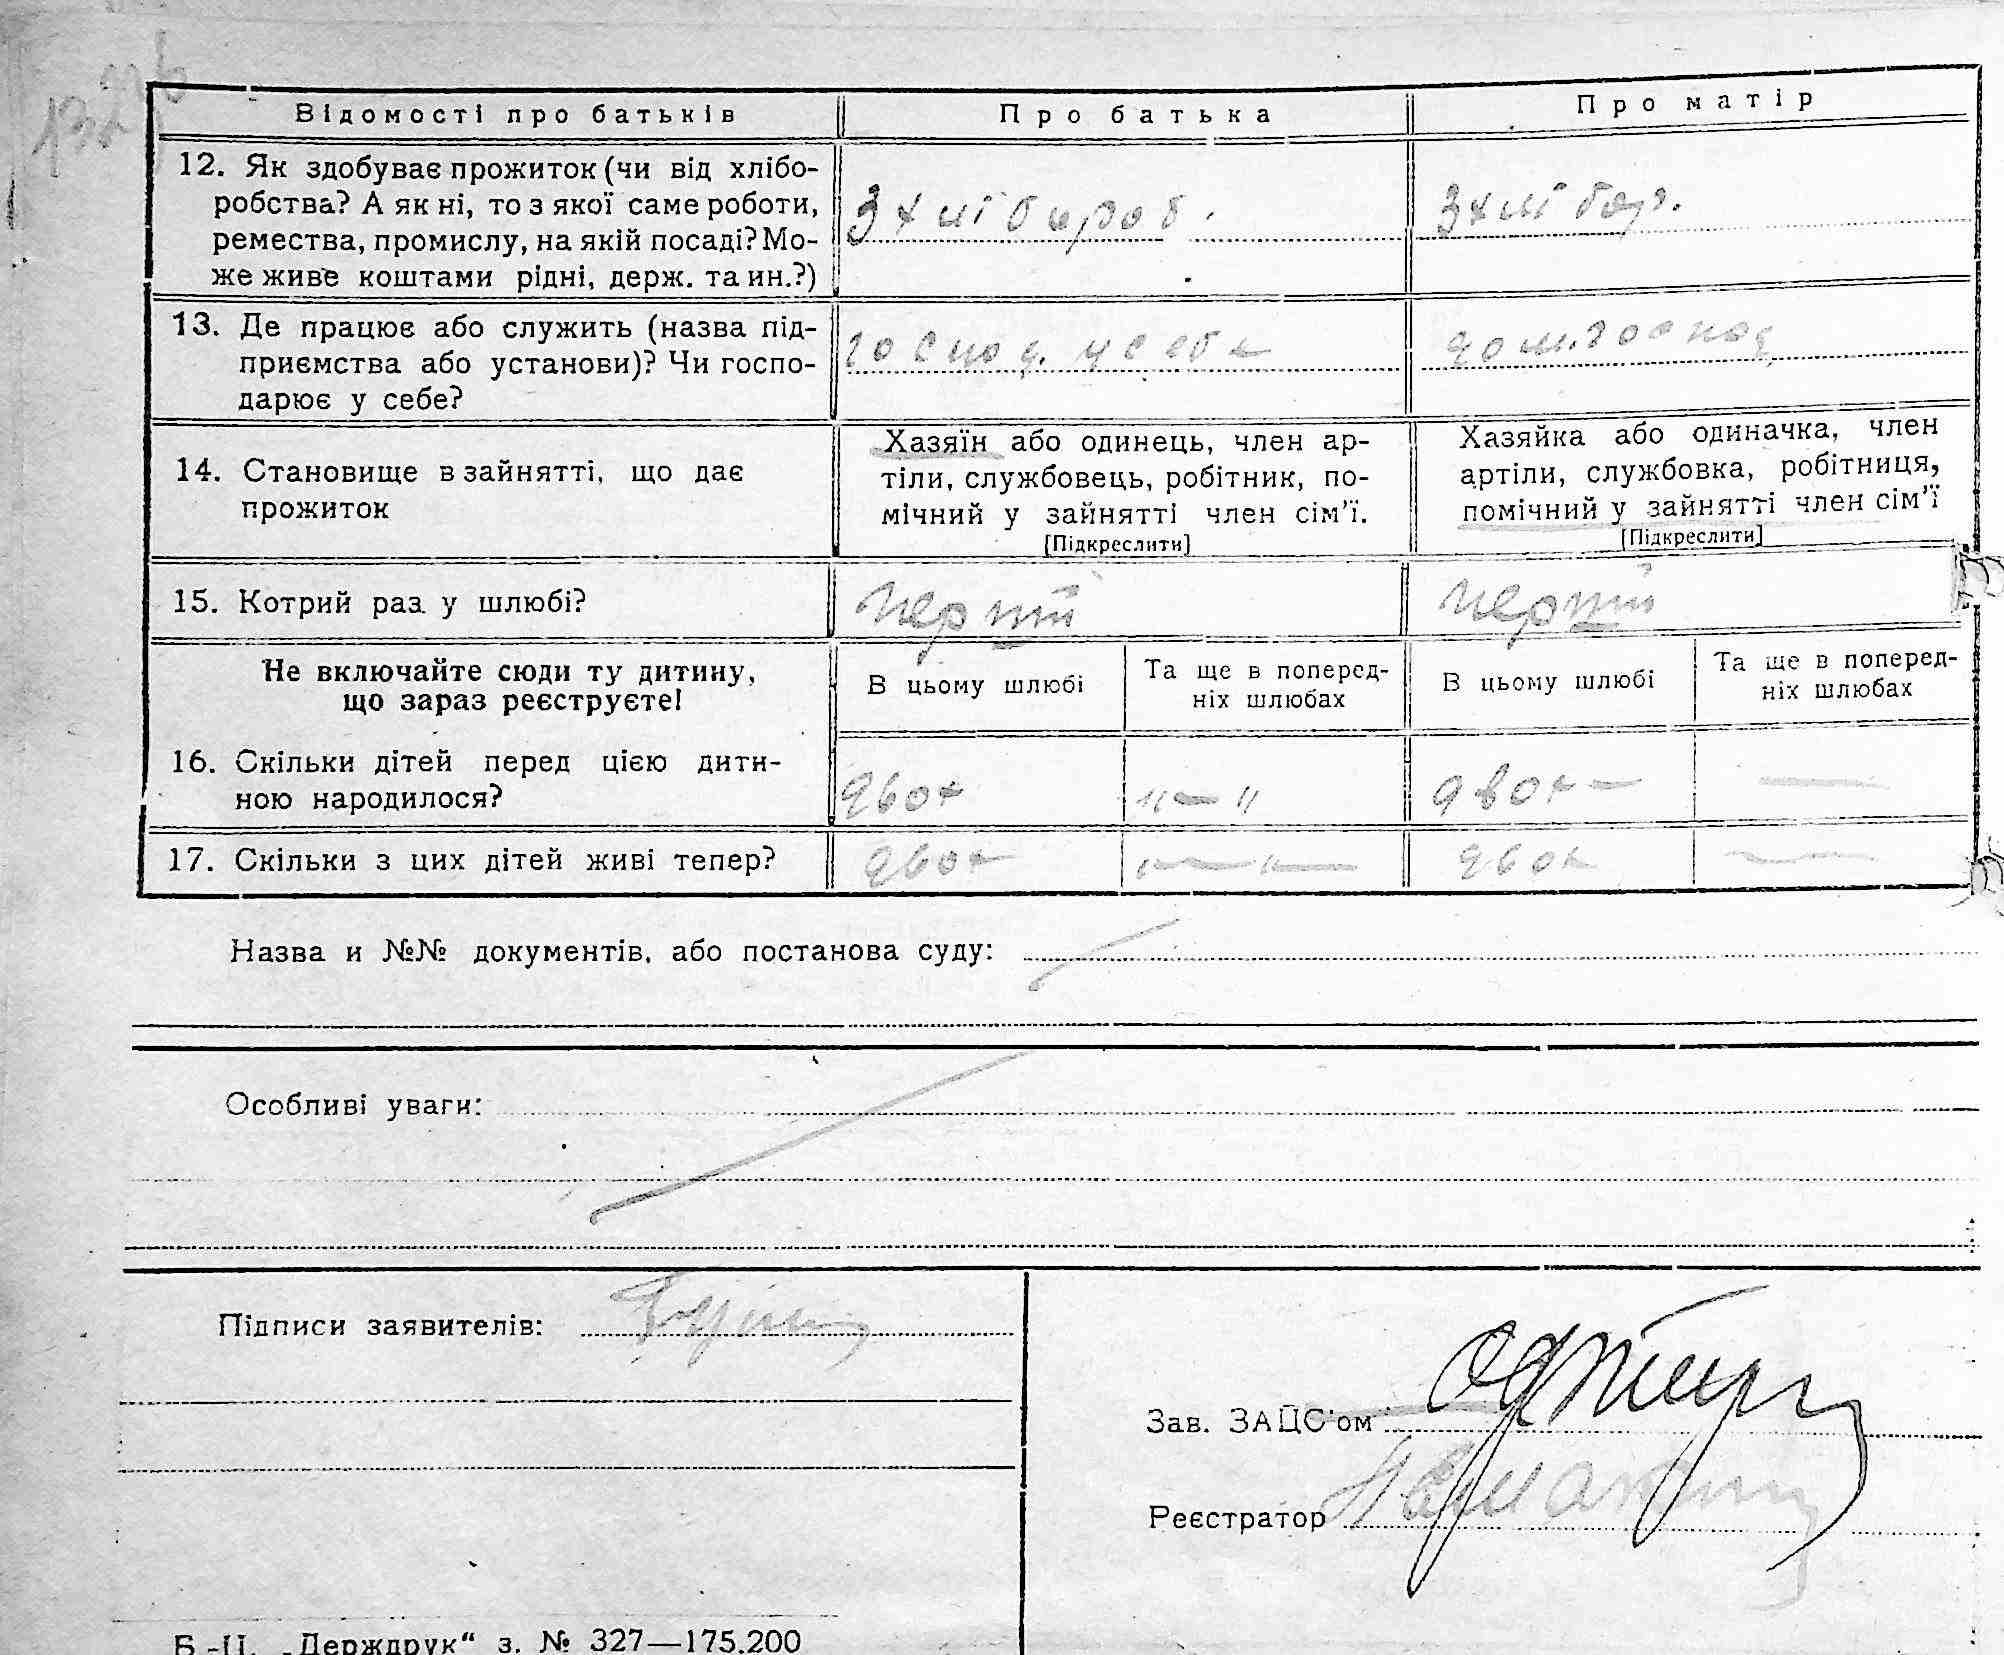 Відомості про батьків
Про батька
Про матір
12. Як здобуває прожиток (чи від хлібо-
робства? А як ні, то з якої саме роботи,
ремества, промислу, на якій посаді? Мо-
же живе коштами рідні, держ. та ин.?)
З хліборооб.
З хлібор.
13. Де працює або служить (назва під-
приємства або установи)? Чи госпо-
дарює у себе?
господ. у себе
дом. господ
14. Становище в зайнятті, що дає
прожиток
Хазяїн або одинець, член ар-
тіли, службовець, робітник, по-
мічний у зайнятті член сім'ї.
[Підкреслити]
Хазяйка або одиначка, член
артіли, службовка, робітниця,
помічний у зайнятті член сім'ї
[Підкреслити]
15. Котрий раз у шлюбі?
перший
перший
Не включайте сюди ту дитину,
що зараз реєструєте!
В цьому шлюбі
Та ще в поперед-
ніх шлюбах
В цьому шлюбі
Та ще в поперед-
ніх шлюбах
16. Скільки дітей перед цією дити-
ною народилося?
двох
"—"
двох —
—
17. Скільки з цих дітей живі тепер?
двох
— —
двох
—
Назва и №№ документів, або постанова суду:
Особливі уваги:
Підписи заявителів:
Зав. ЗАЦС'ом
Реєстратор
Б.-Ц. „Держдрук“ з. № 327—175.200